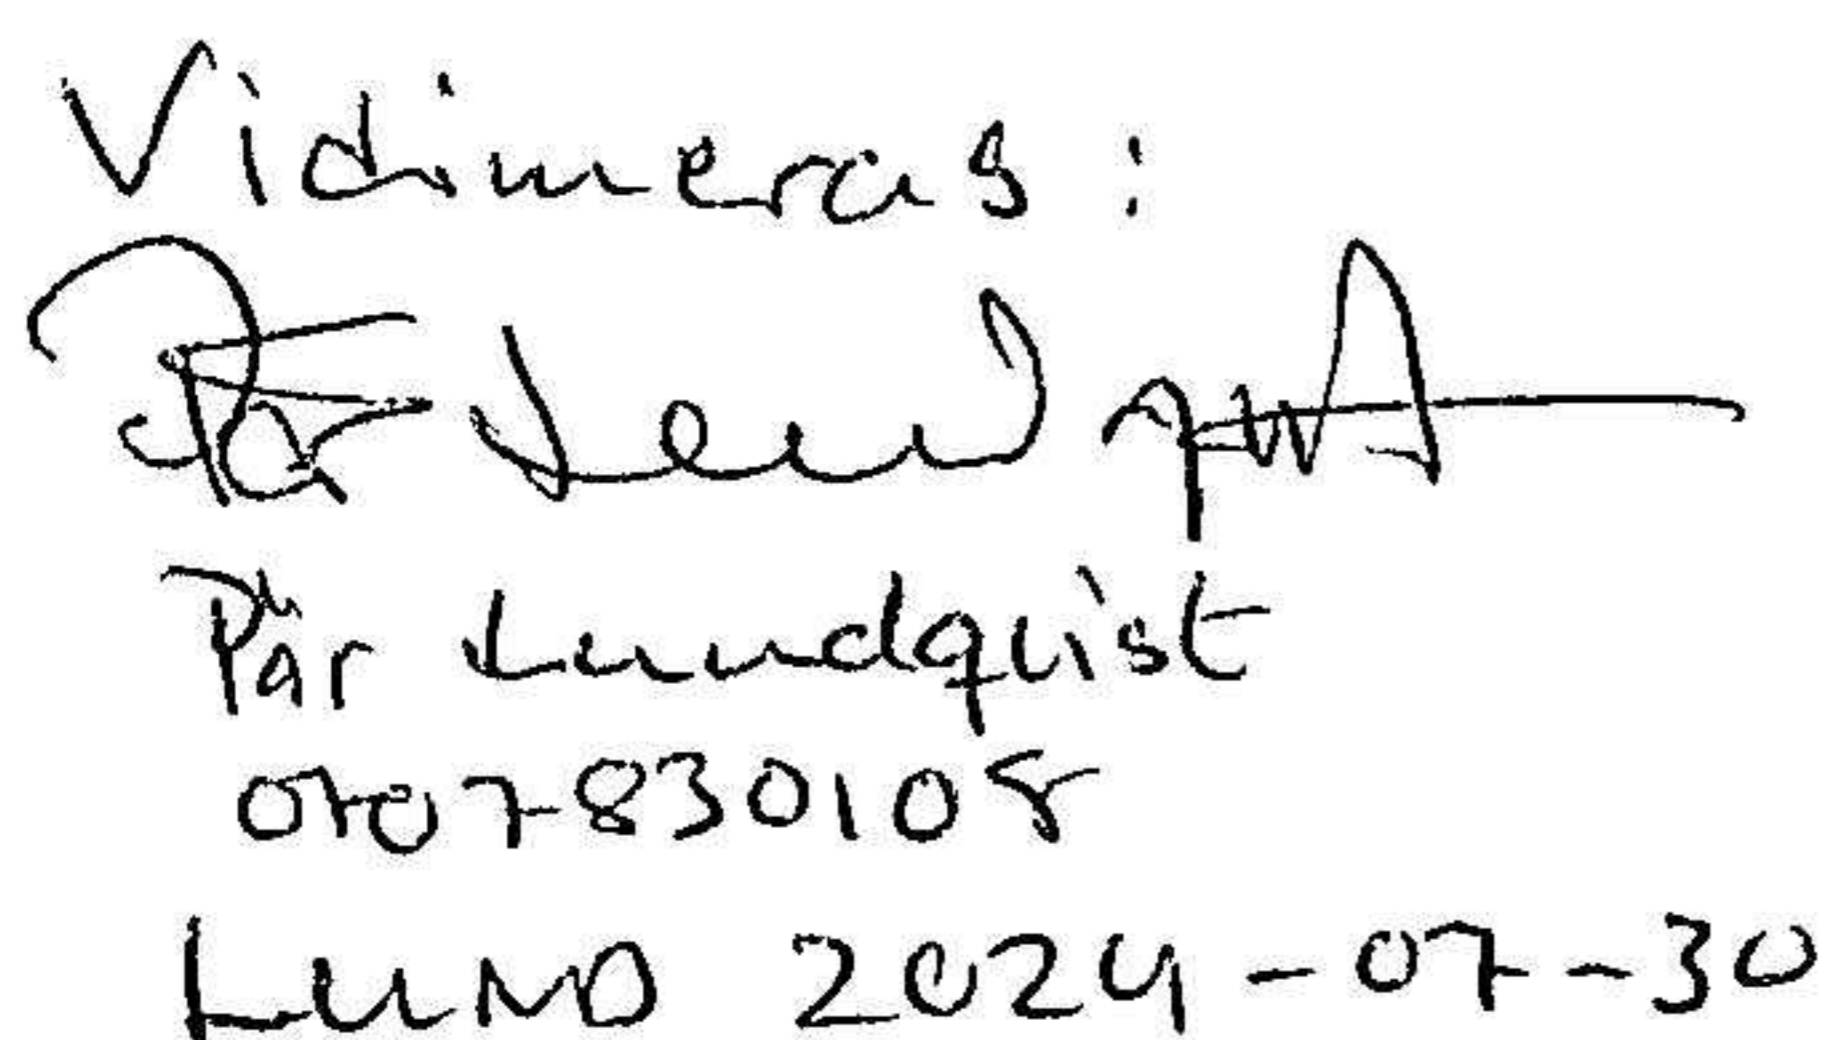 Vidimeras:
Pär Lundquist
Pär Lundquist
0707830108
LUND 2024-07-30